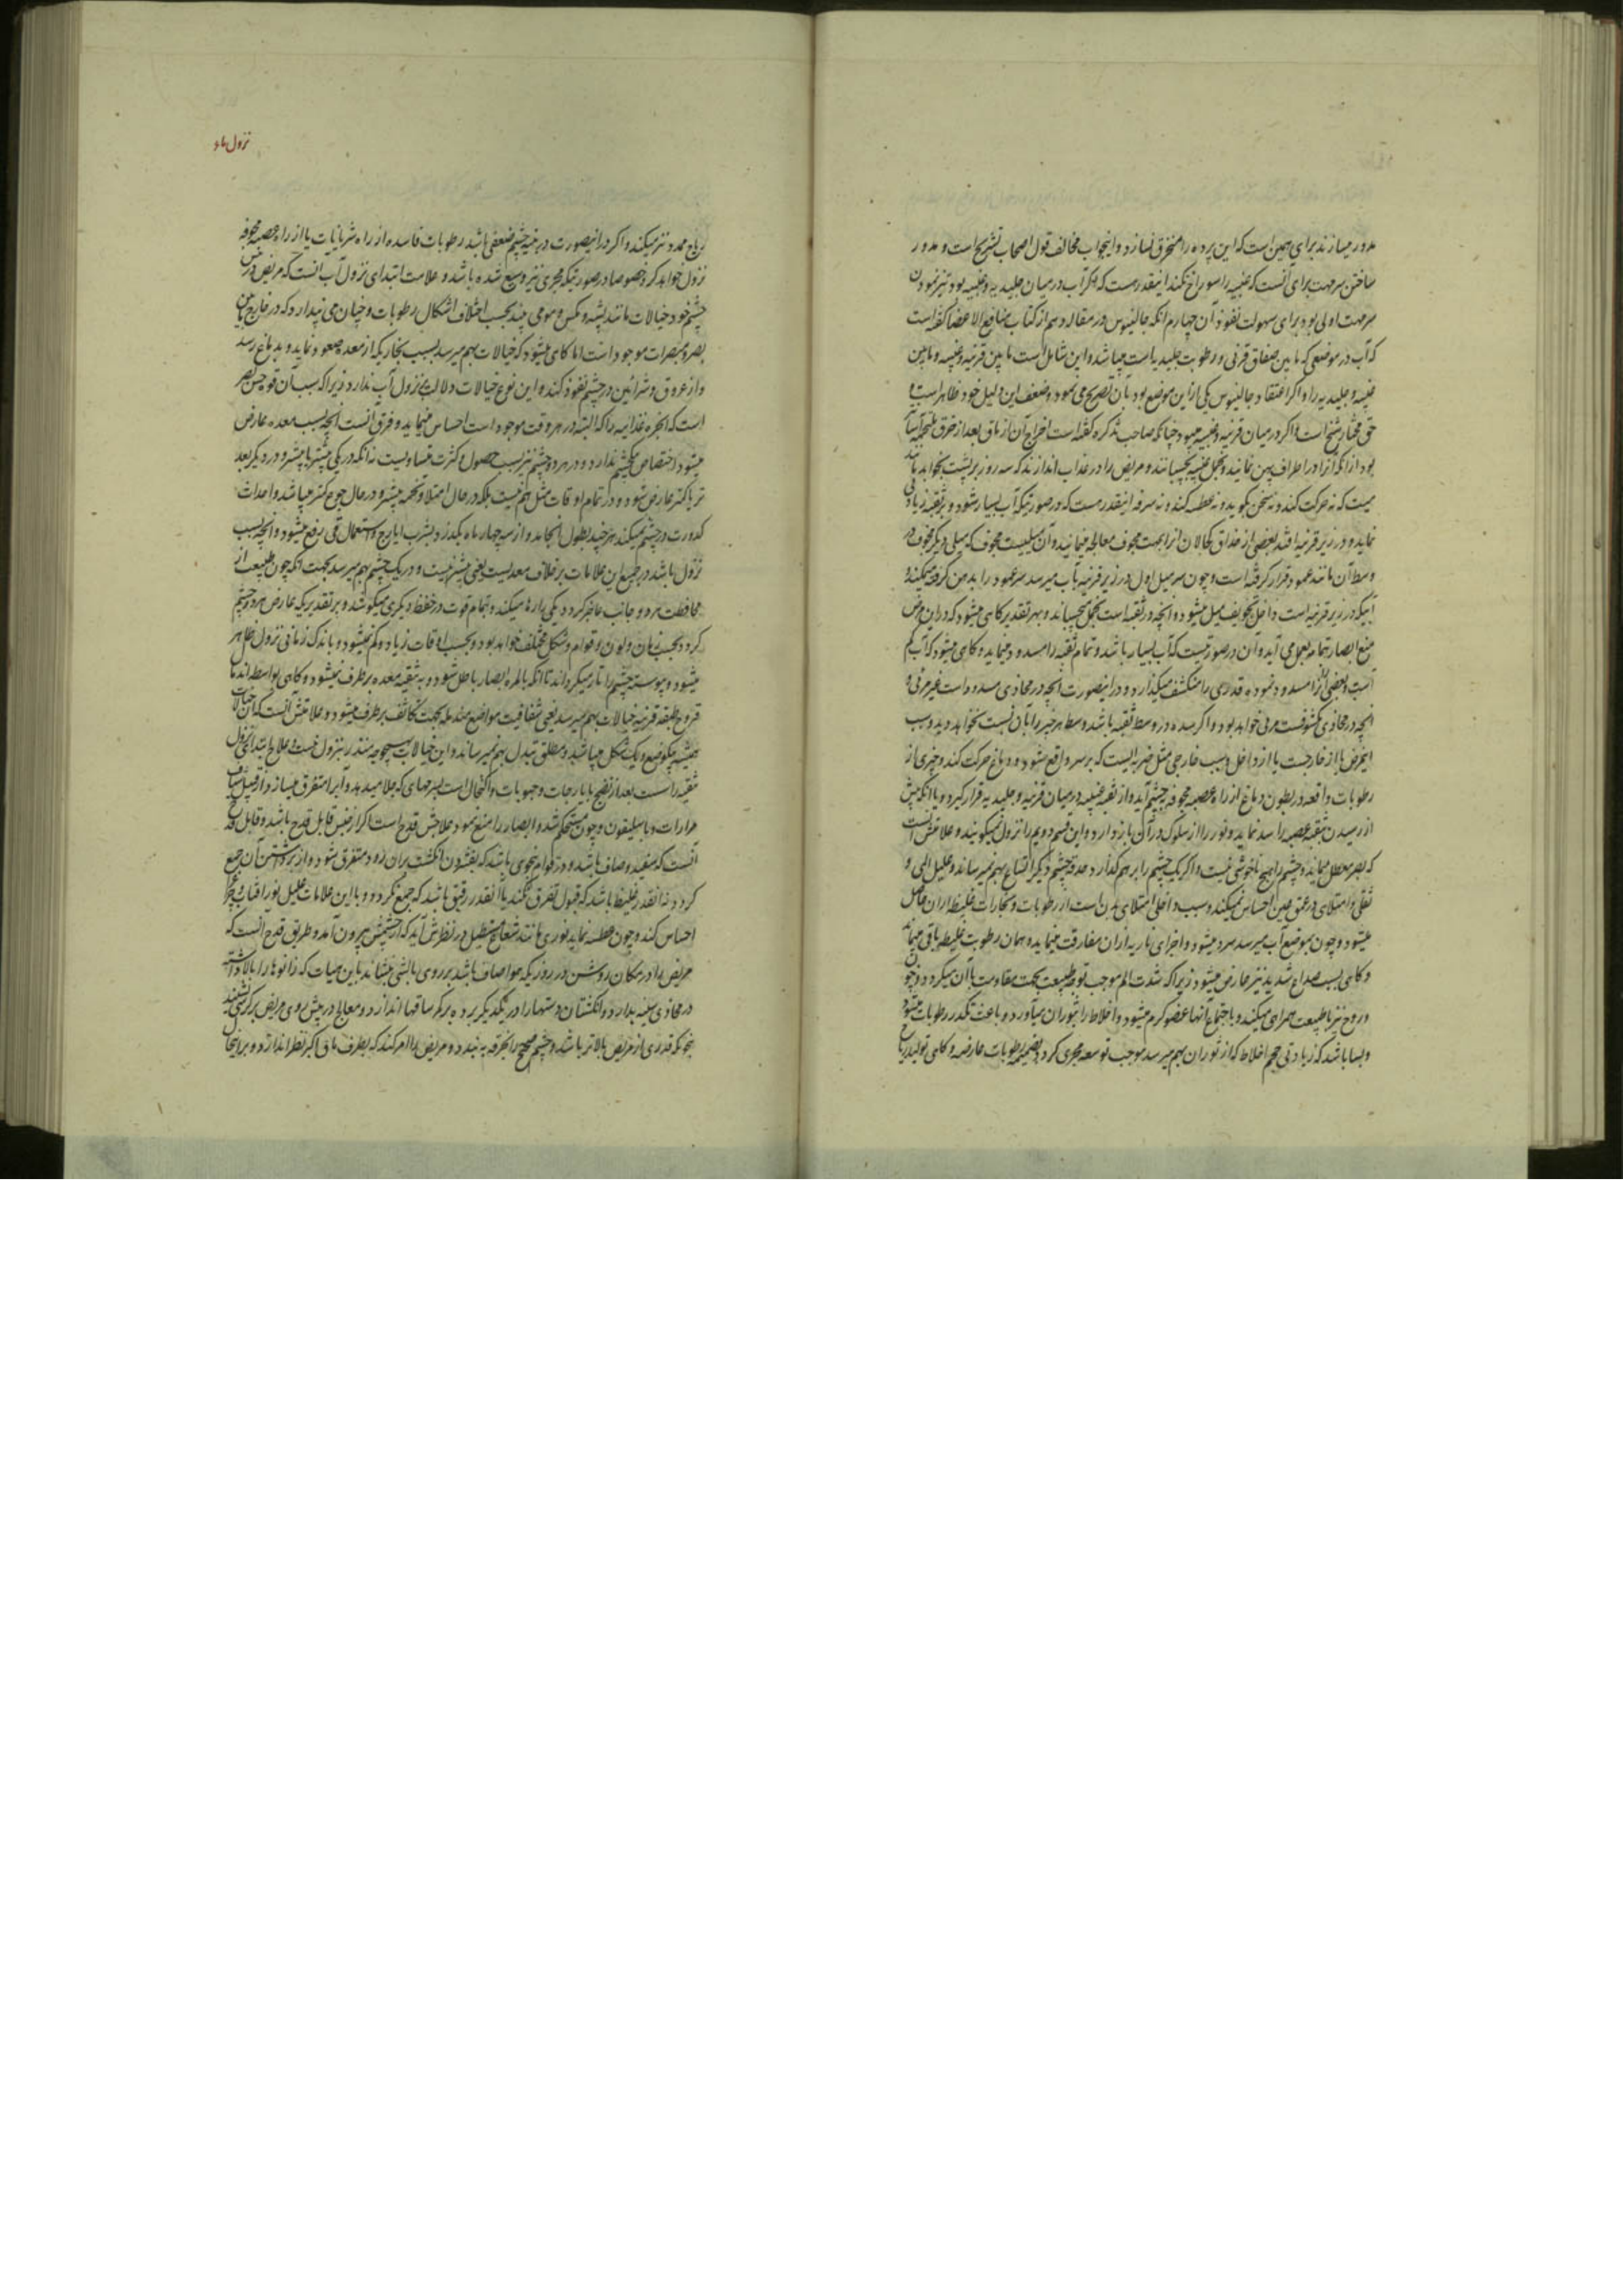 مدور میسازند برای همین است که این پرده را منخرق نسازد و اینجواب مخالف قول اصحاب تشریح است و مدور
ساختن سرمهت برای آنست که عنبیه را سوراخ نکند اینقدر هست که اگر آب در میان جلیدیه و عنبیه بود تیز نمودن
سرمهت اولی بود برای سهولت نفوذ آن چهارم آنکه جالینوس در مقاله دهم از کتاب منافع الاعضا گفته است
که آب در موضعی که مابین صفاق قرنی و رطوبت جلیدیه است میباشد و این شامل است مابین قرنیه و عنبیه و مابین
عنبیه و جلیدیه را و اگر اعتقاد جالینوس یکی از این موضع بود بآن تصریح می نمود و ضعف این دلیل خود ظاهر است و
حق مختار شیخ است و اگر در میان قرنیه و عنبیه میبود چنانکه صاحب تذکره گفته است اخراج آن از ماق بعد از خرق ملتحمه آسان
بود از آنکه آنرا در اطراف پهن نمایند و بخمل عنبیه بچسبانند و مریض را در عذاب اندازند که سه روز بر پشت بخوابد مانند
میت که نه حرکت کند و نه سخن بگوید و نه عطسه کند و نه سرفه اینقدر هست که در صورتیکه آب بسیار شود و بر ثقبه زیادتی
نماید و در زیر قرنیه افتد بعضی از حذاق کحالان آنرا بمهت مجوف معالجه مینمایند و آن میلیست مجوف که میلی دیگر مجوف در
وسط آن مانند عمود قرار گرفته است و چون سر میل اول در زیر قرنیه بآب میرسد سر عمود را بدهن گرفته میمکند و
آبیکه در زیر قرنیه است داخل تجویف میل میشود و آنچه در ثقبه است بخمل میچسباند و بهر تقدیر گاهی میشود که در این مرض
منع ابصار تمام بعمل می آید و آن در صورتیست که آب بسیار باشد و تمام ثقبه را مسدود نماید و گاهی میشود که آب کم
است و بعضی از آنرا مسدود نموده قدری را منکشف میگذارد و در اینصورت آنچه در محاذی مسدود است غیر مرئی و
آنچه در محاذی مکشوفست مرئی خواهد بود و اگر سده در وسط ثقبه باشد وسط هر چیز را بآن نسبت نخواهد دید و سبب
اینمرض یا از خارجست یا از داخل و سبب خارجی مثل ضربه ایست که بر سر واقع شود و دماغ حرکت کند و چیزی از
رطوبات واقعه در بطون دماغ از راه عصبه مجوفه بچشم آید و از ثقبه عنبیه در میان قرنیه و جلیدیه قرار گیرد و یا آنکه پیش
از رسیدن بثقبه عصبه را سد نماید و نور را از سلوک در آن باز دارد و این قسم دویم را نزول نمیگویند و علامتش آنست
که بصر معطل میماند و چشم را هیچ ناخوشی نیست و اگر یک چشم را بر هم گذارد حدقه چشم دیگر اتساع بهم نمیرساند و علیل المی و
ثقلی و امتلای در عمق عین احساس نمیکند و سبب داخلی امتلای بدن است از رطوبات و بخارات غلیظه از آن حاصل
میشود و چون بموضع آب میرسد سرد میشود و اجزای ناریه از آن مفارقت مینماید و همان رطوبت غلیظه باقی میماند
و گاهی بسبب صداع شدید نیز عارض میشود زیرا که شدت الم موجب توجه طبیعت بجهت مقاومت با آن میگردد و خون
و روح نیز با طبیعت همراهی میکنند و باجتماع آنها عضو گرم میشود و اخلاط را بثوران میآورد و باعث تکدر رطوبات میشود
و بسا باشد که زیادتی حجم اخلاط که از ثوران بهم میرسد موجب توسعه مجری گردد بضمیمه رطوبات عارضه و گاهی تولید ریاح
نزول ماء
ریاح ممدد نیز میکند و اگر در اینصورت در بنیه چشم ضعفی باشد رطوبات فاسده از راه شریانات یا از راه عصبه مجوفه
نزول خواهد کرد خصوصا در صورتیکه مجری نیز وسیع شده باشد و علامت ابتدای نزول آب آنست که مریض در پیش
چشم خود خیالات مانند پشه و مگس و مومی بیند بحسب اختلاف اشکال رطوبات و چنان می پندارد که در خارج مابین
بصر و مبصرات موجود است اما گاهی میشود که خیالات بهم میرسد بسبب بخاریکه از معده صعود نماید و بدماغ رسد
و از عروق و شرائین در چشم نفوذ کند و این نوع خیالات دلالت بر نزول آب ندارد زیرا که سبب آن قوت حس بصر
است که ابخره غذائیه را که البته در هر وقت موجود است احساس مینماید و فرق آنست آنچه بسبب معده عارض
میشود اختصاص بیکچشم ندارد و در هر دو چشم نیز بسبب حصول و کثرت مساویست نه آنکه در یکی پیشتر یا بیشتر و در دیگر بعد
تر یا کمتر عارض شود و در تمام اوقات مثل هم نیست بلکه در حال امتلا و تخمه بیشتر و در حال جوع کمتر میباشد و احداث
کدورت در چشم نمیکند هر چند بطول انجامد و از سه چهار ماه بگذرد و بشرب ایارج و استعمال قی رفع میشود و آنچه بسبب
نزول باشد در جمیع این علامات بر خلاف معدیست یعنی بیشتر نیست و در یک چشم بهم میرسد بجهت آنکه چون طبیعت از
محافظت هر دو جانب عاجز گردد یکی را رها میکند و بتمام قوت در حفظ دیگری میکوشد و بر تقدیریکه عارض هر دو چشم
گردد بحسب زمان و لون و قوام و شکل مختلف خواهد بود و بحسب اوقات زیاد و کم نمیشود و باندک زمانی نزول ظاهر
میشود و پیوسته چشم را تار میگرداند تا آنکه بالمره ابصار باطل شود و به تنقیه معده بر طرف نمیشود و گاهی بواسطه اندمال
قروح طبقه قرنیه خیالات بهم میرسد یعنی شفافیت مواضع مندمله بجهت تکاثف بر طرف میشود و علامتش آنست که آن خیالات
همیشه بیکوضع و یک شکل میباشد و مطلق تبدل بهم نمیرساند و این خیالات بهیچوجه منذر بنزول نیست و علاج ابتدای نزول
تنقیه راست بعد از نضج بایارجات و حبوبات و اکتحال است بسرمهای که جلا میدهد و آب را متفرق میسازد از قبیل شیاف
مرارات و باسلیقون و چون مستحکم شد و ابصار را منع نمود علاجش قدح است اگر از جنس قابل قدح باشد و قابل قدح
آنست که سفید و صاف باشد و در قوام بنحوی باشد که بفشردن انگشت بر آن زود متفرق شود و از برداشتن آن جمع
گردد نه آنقدر غلیظ باشد که قبول تفرق نکند یا آنقدر رقیق باشد که جمع نگردد و با این علامات علیل نور آفتاب و چراغ
احساس کند و چون عطسه نماید نوری مانند شعاع مستطیل در نظرش آید که از چشمش بیرون آمد و طریق قدح آنست که
مریض را در مکان روشن در روزیکه هوا صاف باشد بر روی بالشی بنشاند باین هیات که زانوها را بالا داشته
در محاذی سینه بدارد و انگشتان دستها را در یکدیگر برده بر گرد ساقها اندازد و معالج در پیش روی مریض بر کرسی نشیند
بنحویکه قدری از مریض بالاتر باشد و چشم صحیح را بخرقه به بندد و مریض را امر کند که بطرف ماق اکبر نظر اندازد و بر اینحال